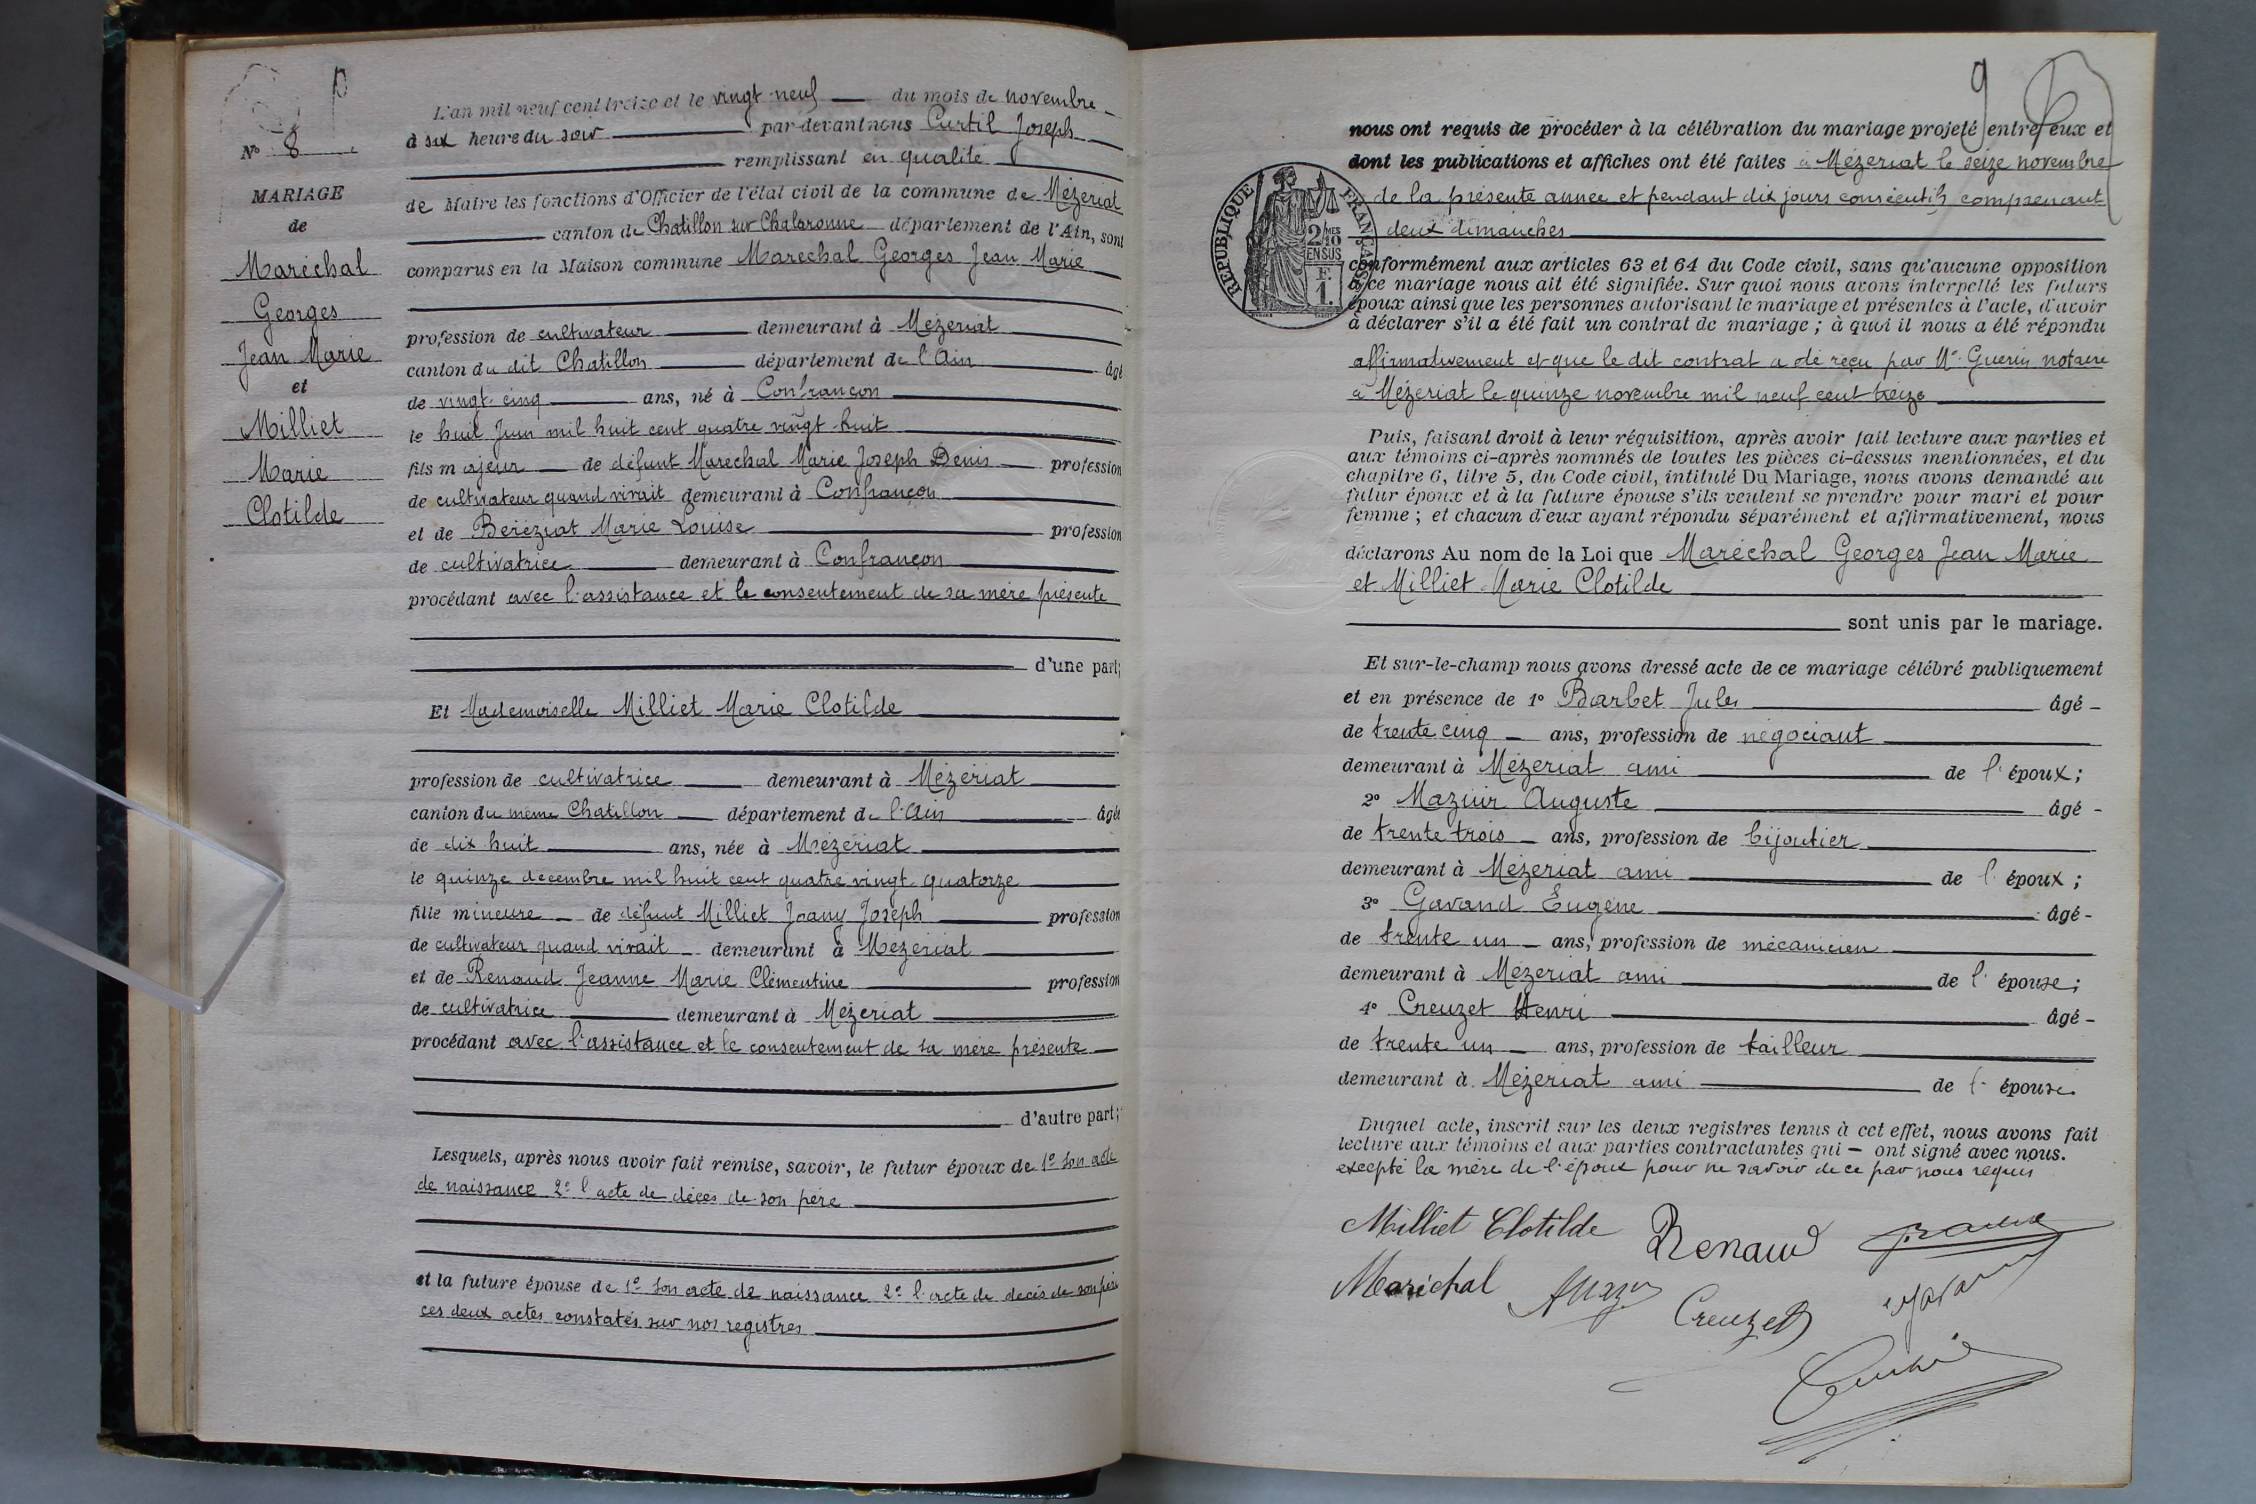 Nº 8
MARIAGE
de
Maréchal
Georges
Jean Marie
et
Milliet
Marie
Clotilde
L'an mil neuf cent treize et le vingt neuf du mois de novembre
à six heure du soir par-devant nous Curtil Joseph
remplissant en qualité
de Maire les fonctions d'Officier de l'état civil de la commune de Mézériat
canton de Chatillon sur Chalaronne département de l'Ain, sont
comparus en la Maison commune Maréchal Georges Jean Marie
profession de cultivateur demeurant à Mézériat
canton du dit Chatillon département de l'Ain âgé
de vingt-cinq ans, né à Confrançon
le huit Juin mil huit cent quatre vingt huit
fils majeur de défunt Maréchal Marie Joseph Denis profession
de cultivateur quand vivait demeurant à Confrançon
et de Béréziat Marie Louise profession
de cultivatrice demeurant à Confrançon
procédant avec l'assistance et le consentement de sa mère présente
d'une part;
Et Mademoiselle Milliet Marie Clotilde
profession de cultivatrice demeurant à Mézériat
canton du même Chatillon département de l'Ain âgée
de dix huit ans, née à Mézériat
le quinze décembre mil huit cent quatre vingt quatorze
fille mineure de défunt Milliet Joany Joseph profession
de cultivateur quand vivait demeurant à Mézériat
et de Renaud Jeanne Marie Clémentine profession
de cultivatrice demeurant à Mézériat
procédant avec l'assistance et le consentement de sa mère présente
d'autre part;
Lesquels, après nous avoir fait remise, savoir, le futur époux de 1º son acte
de naissance 2º l'acte de décès de son père
et la future épouse de 1º son acte de naissance 2º l'acte de décès de son père
ces deux actes constatés sur nos registres
9
nous ont requis de procéder à la célébration du mariage projeté entre eux et
dont les publications et affiches ont été faites à Mézériat le seize novembre
de la présente année et pendant dix jours consécutifs comprenant
deux dimanches
RÉPUBLIQUE FRANÇAISE
2/10 MES
EN SUS
F.
1.
conformément aux articles 63 et 64 du Code civil, sans qu'aucune opposition
à ce mariage nous ait été signifiée. Sur quoi nous avons interpellé les futurs
époux ainsi que les personnes autorisant le mariage et présentes à l'acte, d'avoir
à déclarer s'il a été fait un contrat de mariage ; à quoi il nous a été répondu
affirmativement et que le dit contrat a de reçu par Me Guerin notaire
à Mézériat le quinze novembre mil neuf cent treize
Puis, faisant droit à leur réquisition, après avoir fait lecture aux parties et
aux témoins ci-après nommés de toutes les pièces ci-dessus mentionnées, et du
chapitre 6, titre 5, du Code civil, intitulé Du Mariage, nous avons demandé au
futur époux et à la future épouse s'ils veulent se prendre pour mari et pour
femme ; et chacun d'eux ayant répondu séparément et affirmativement, nous
déclarons Au nom de la Loi que Maréchal Georges Jean Marie
et Milliet Marie Clotilde
sont unis par le mariage.
Et sur-le-champ nous avons dressé acte de ce mariage célébré publiquement
et en présence de 1º Barbet Jules âgé
de trente cinq ans, profession de négociant
demeurant à Mézériat ami de l'époux;
2º Mazuir Auguste âgé
de trente trois ans, profession de bijoutier
demeurant à Mézériat ami de l'époux;
3º Gavand Eugène âgé
de trente un ans, profession de mécanicien
demeurant à Mézériat ami de l'épouse;
4º Creuzet Henri âgé
de trente un ans, profession de tailleur
demeurant à Mézériat ami de l'épouse.
Duquel acte, inscrit sur les deux registres tenus à cet effet, nous avons fait
lecture aux témoins et aux parties contractantes qui ont signé avec nous.
excepté la mère de l'époux pour ne savoir de ce par nous requis
Milliet Clotilde Renaud
Maréchal Creuzet